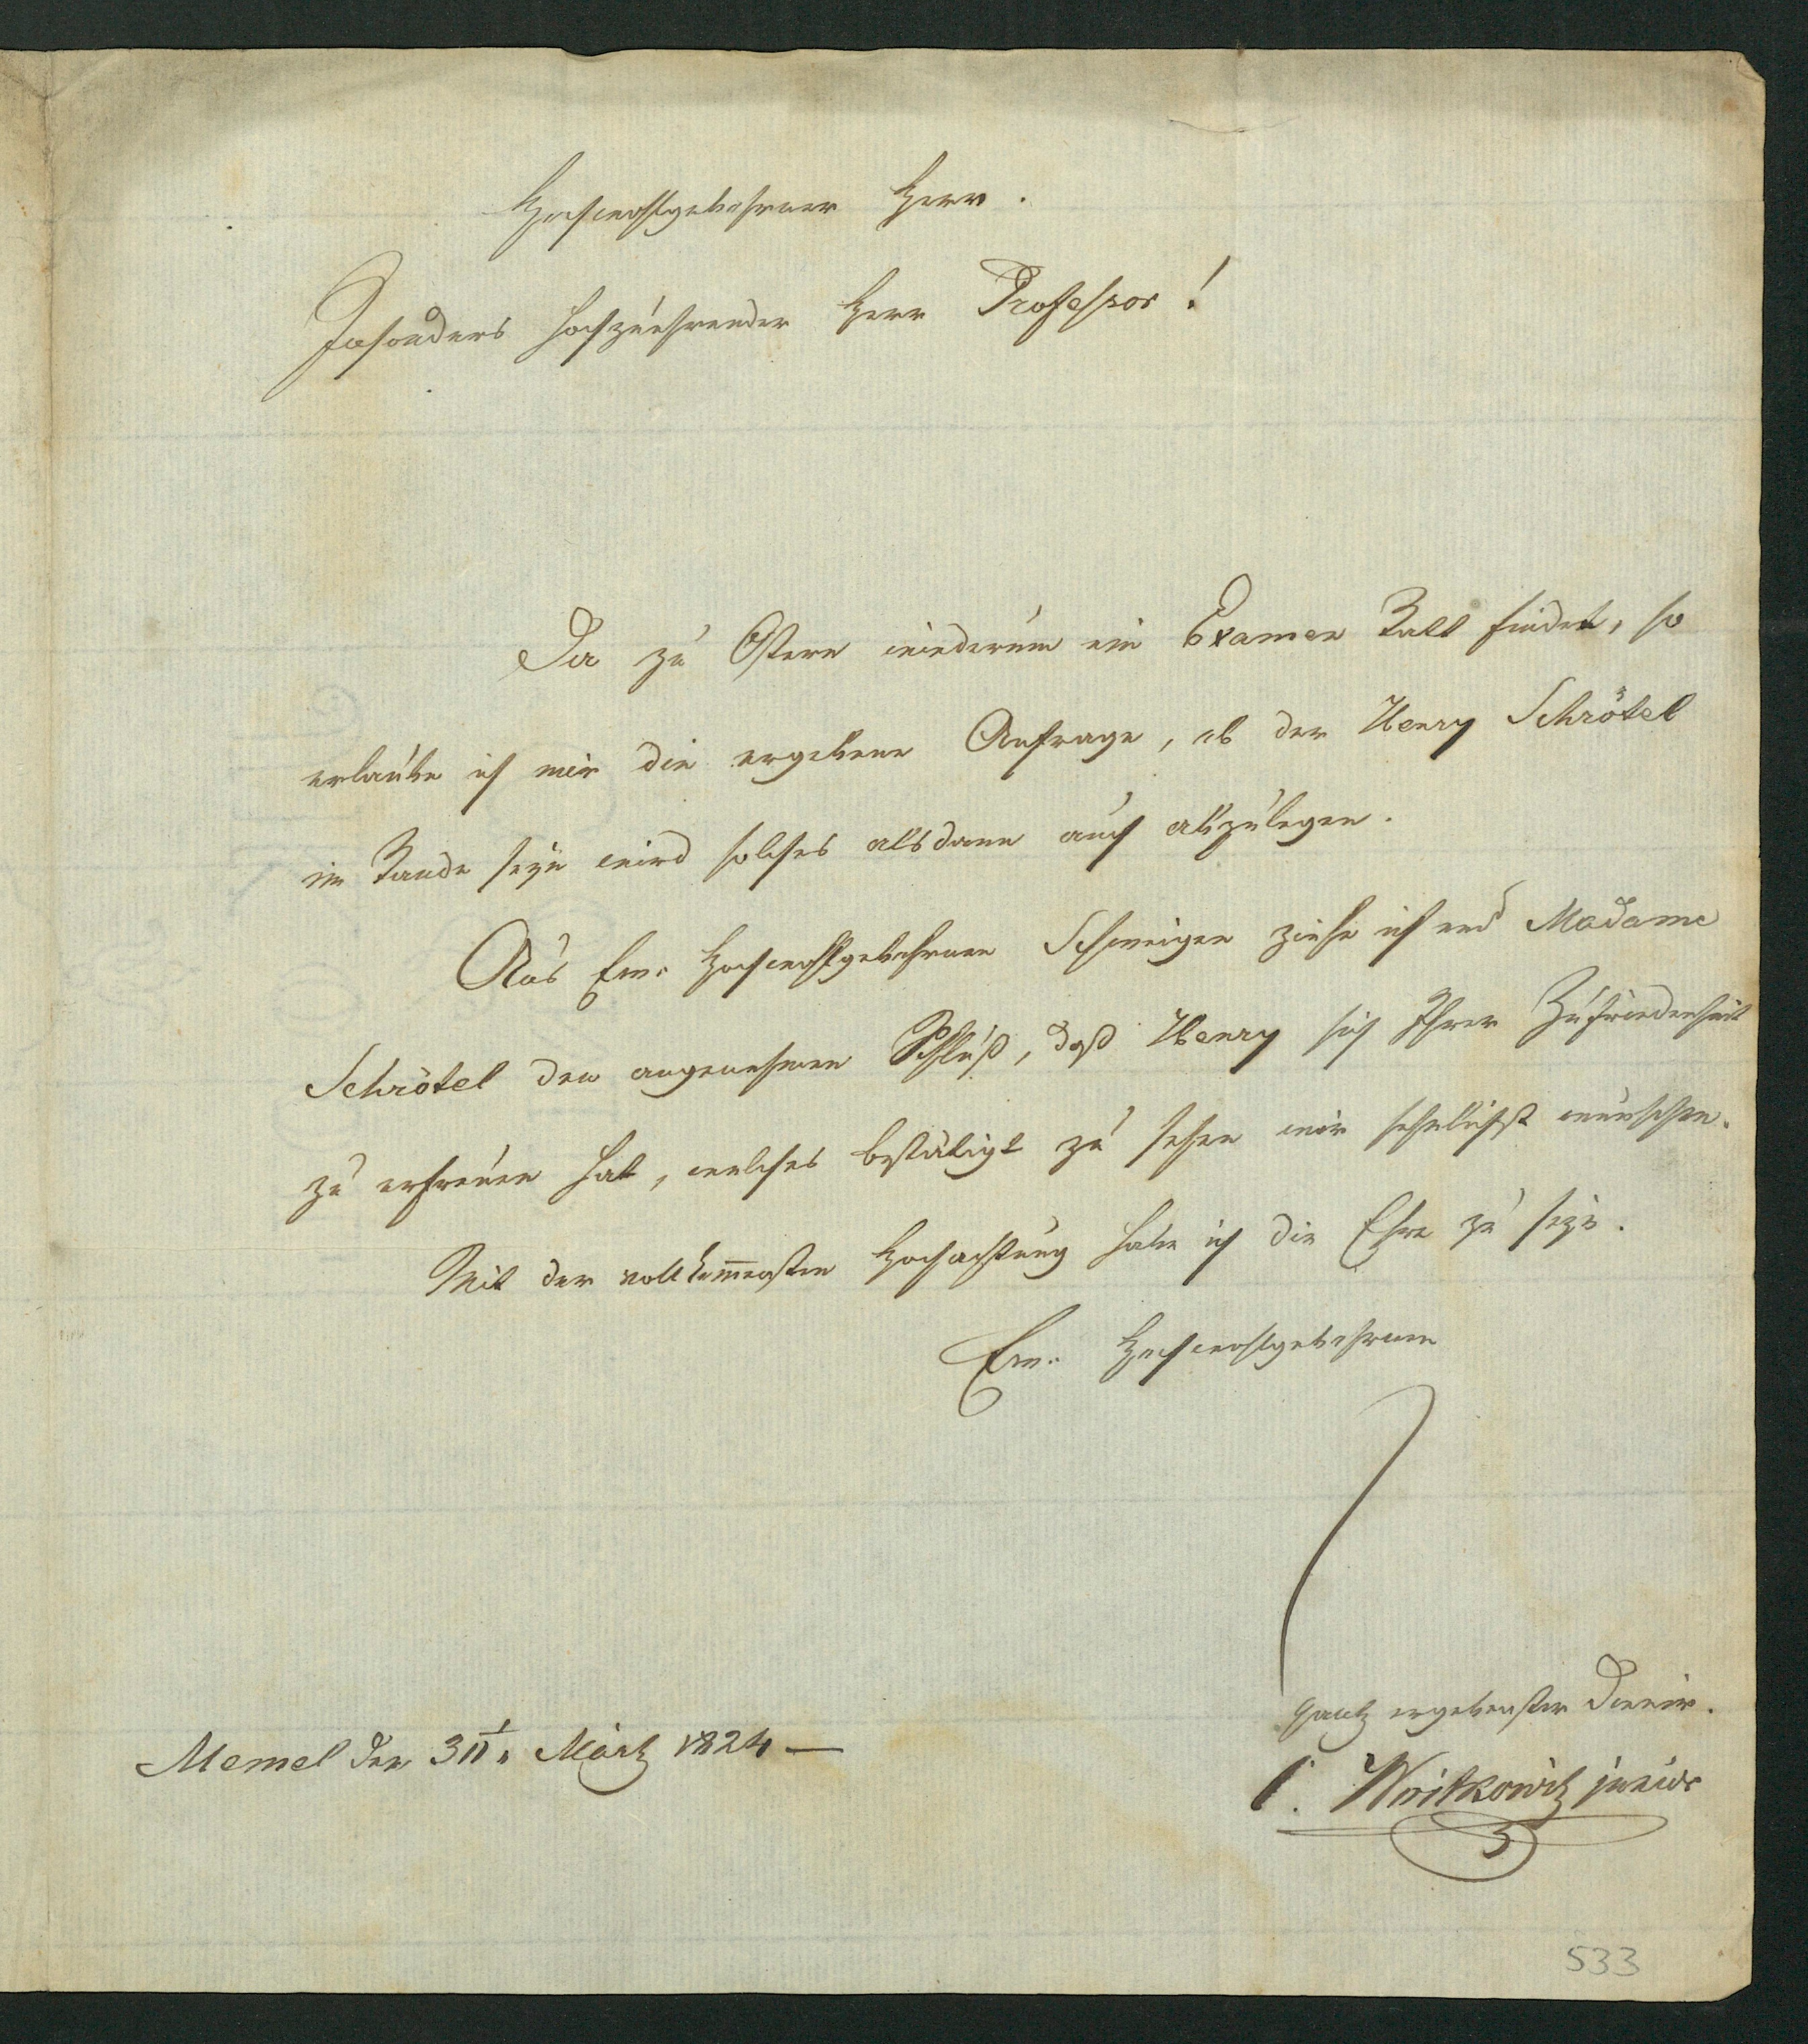 Hochwohlgebohrner Herr.
Insonders hochzuehrender Herr Professor!
Da zu Ostern wiederum ein Examen Statt findet, so
erlaube ich mir die ergebene Anfrage, ob der Henry Schrötel
im Stande seyn wird solches alsdann auch abzulegen.
Aus Ew. Hochwohlgebohrnen Schweigen ziehe ich und Madame
Schrötel den angenehmen Schluß, daß Henry sich Ihrer Zufriedenheit
zu erfreuen hat, welches bestätigt zu sehen wir sehnlichst wünschen.
Mit der vollkom̅ensten Hochachtung habe ich die Ehre zu seyn.
Ew. Hochwohlgebohrnen
gantz ergebenster Diener.
Memel den März 1824 —
C. Woitkowitz junior
533